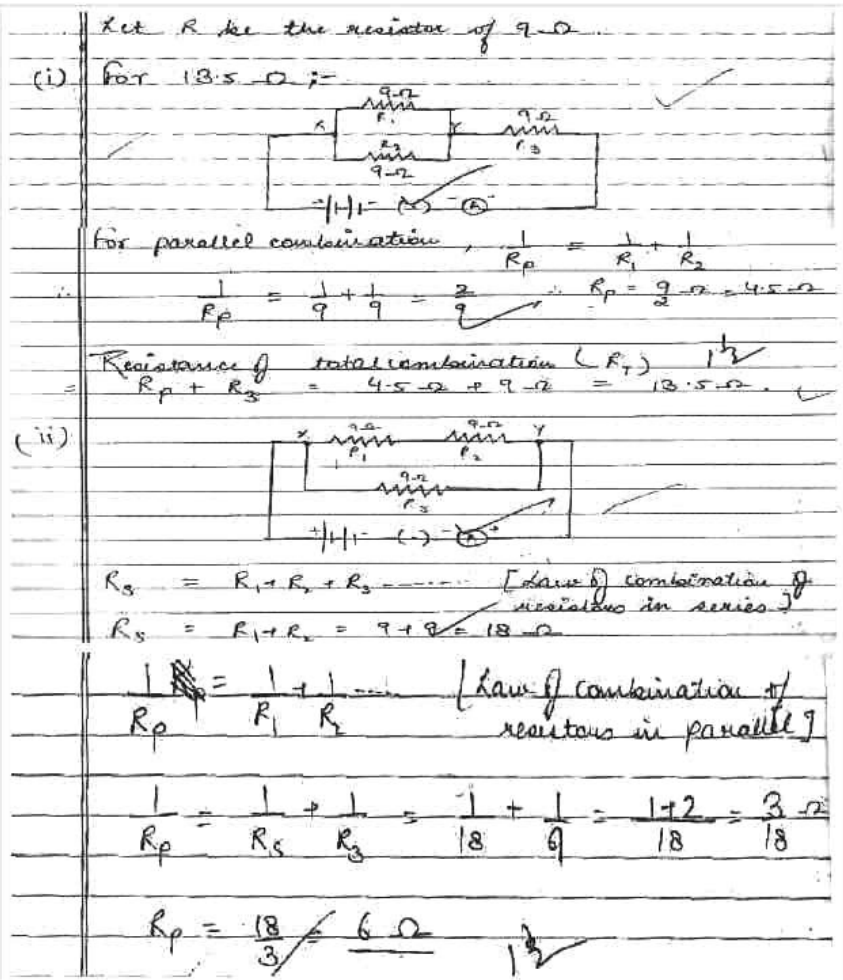 Let R be the resistor of 9 Ω.
(i) For 13.5 Ω :-
9Ω
R₁
X Y 9Ω
R₂ r₃
9Ω
For parallel combination, 1/Rp = 1/R₁ + 1/R₂
∴ 1/Rp = 1/9 + 1/9 = 2/9 ∴ Rp = 9/2 Ω = 4.5 Ω
Resistance of total combination (R_T) 1½
= Rp + R₃ = 4.5 Ω + 9 Ω = 13.5 Ω.
(ii) X 9Ω 9Ω Y
R₁ R₂
9Ω
r₃
+ - (.) - A +
Rs = R₁ + R₂ + R₃ ------- [Law of combination of
resistors in series]
Rs = R₁ + R₂ = 9 + 9 = 18 Ω
1/Rp = 1/R₁ + 1/R₂ ---- [Law of combination of
resistors in parallel]
1/Rp = 1/Rs + 1/R₃ = 1/18 + 1/9 = 1+2/18 = 3/18 Ω
Rp = 18/3 = 6 Ω 1½